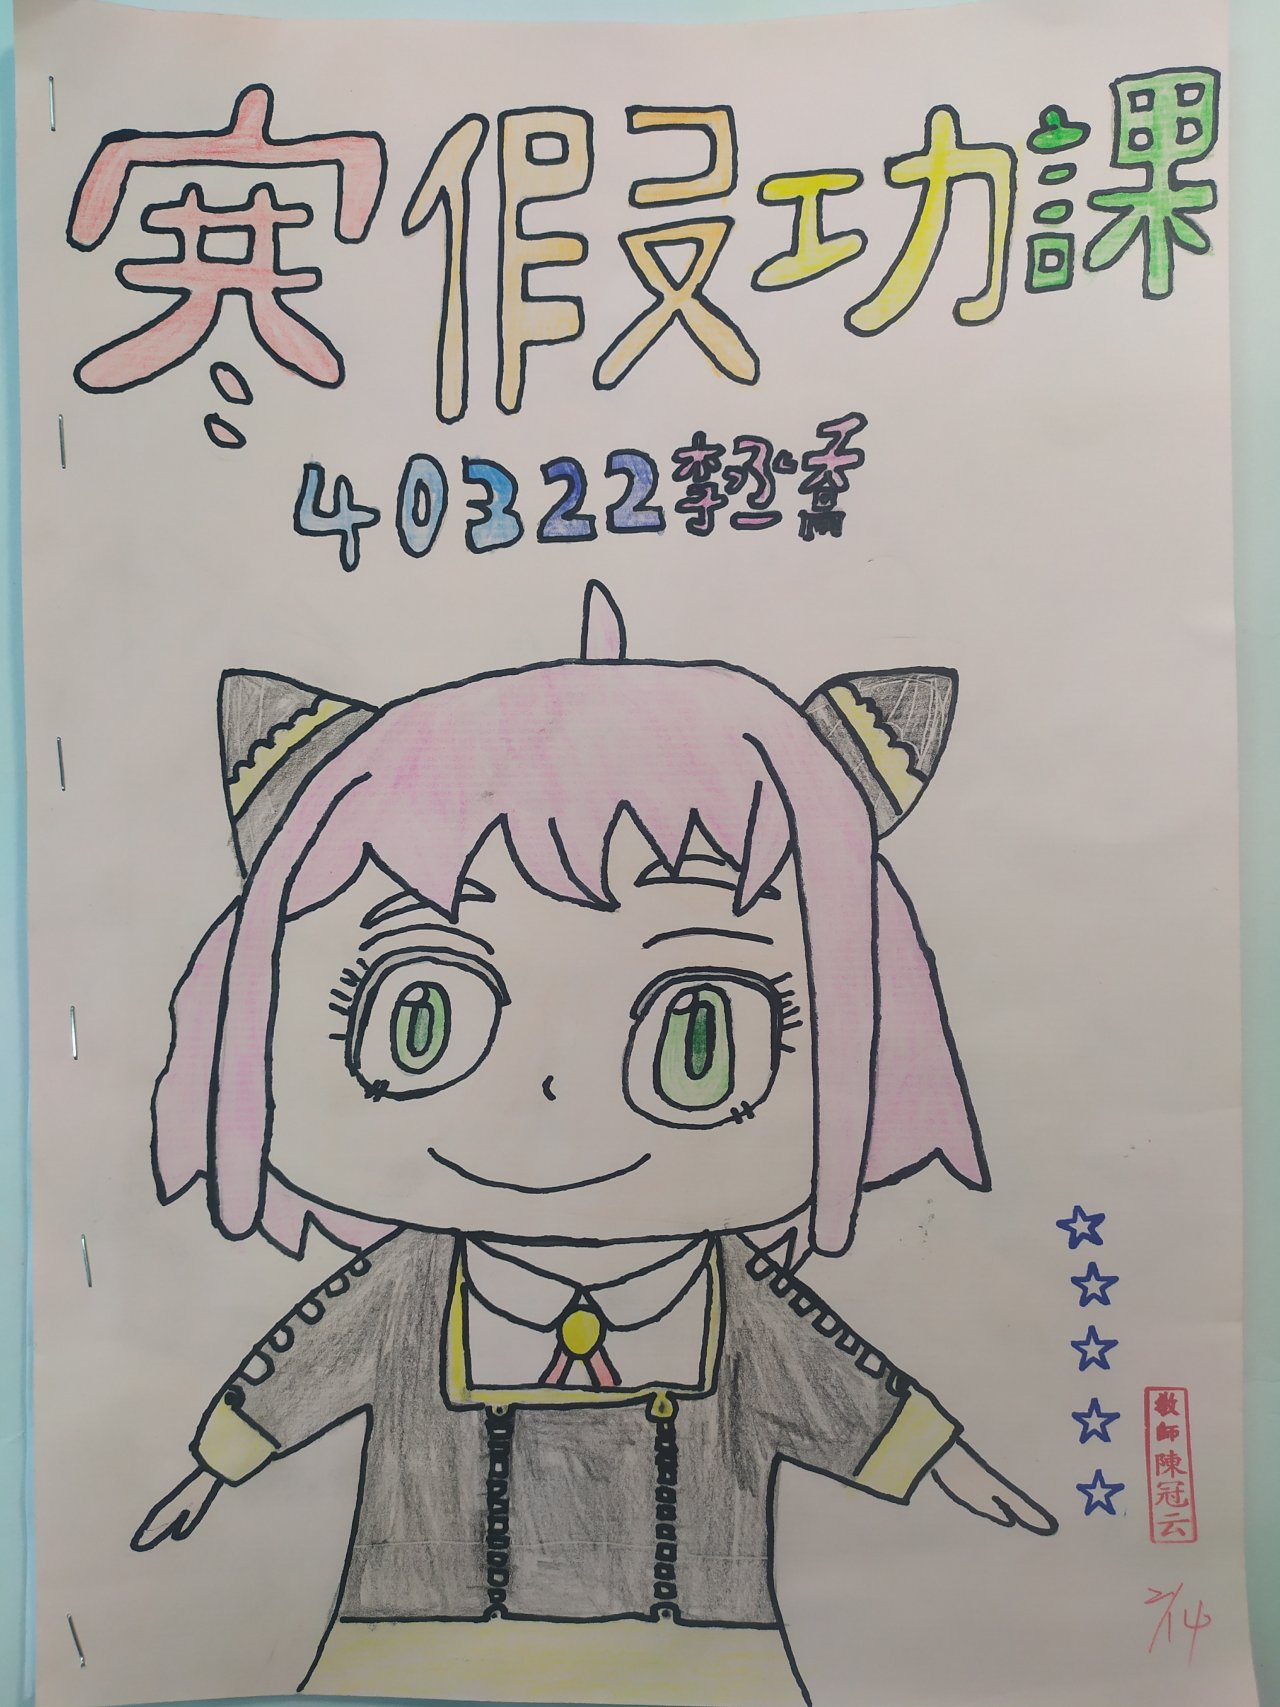 寒假功課
40322李丞喬
☆
☆
☆
☆
☆
教師陳冠云
2/14